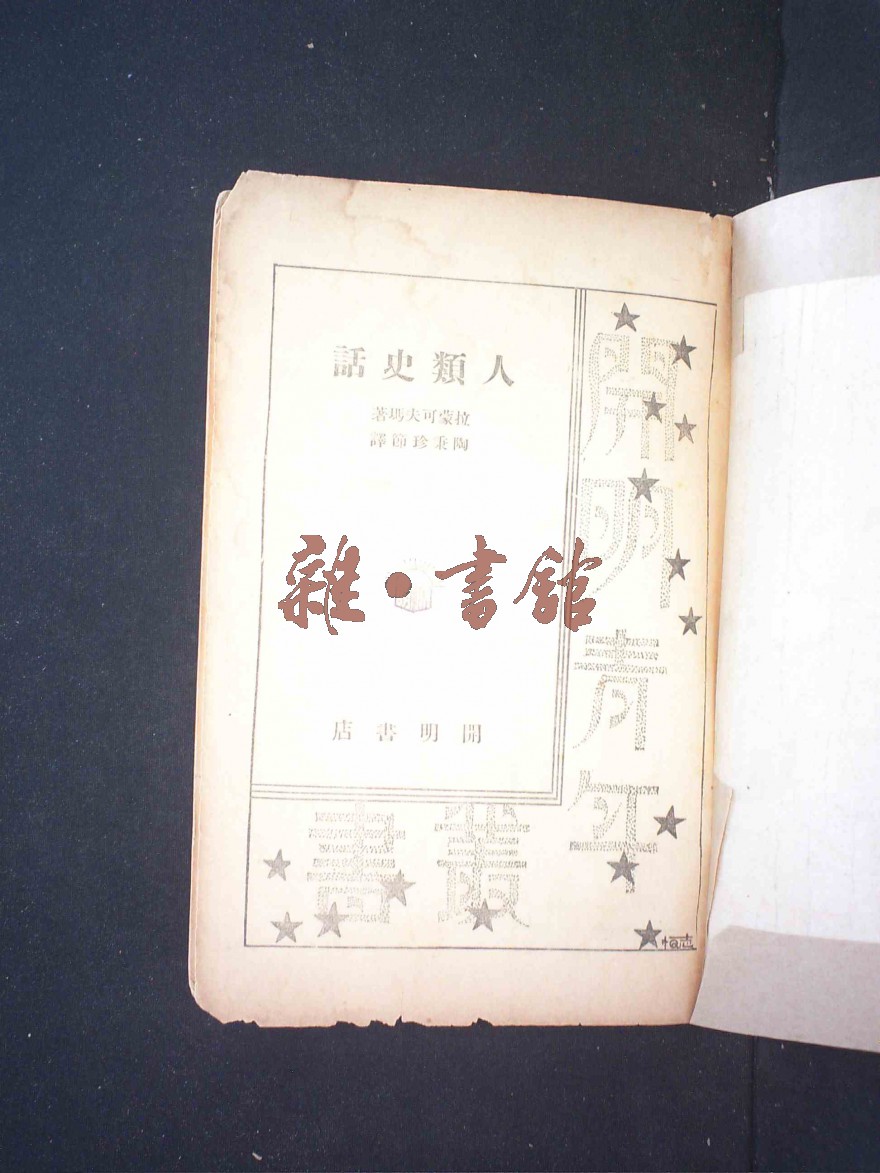 人類史話
拉蒙可夫瑪著
陶秉珍節譯
開明書店
開明青年
叢書
雜●書館